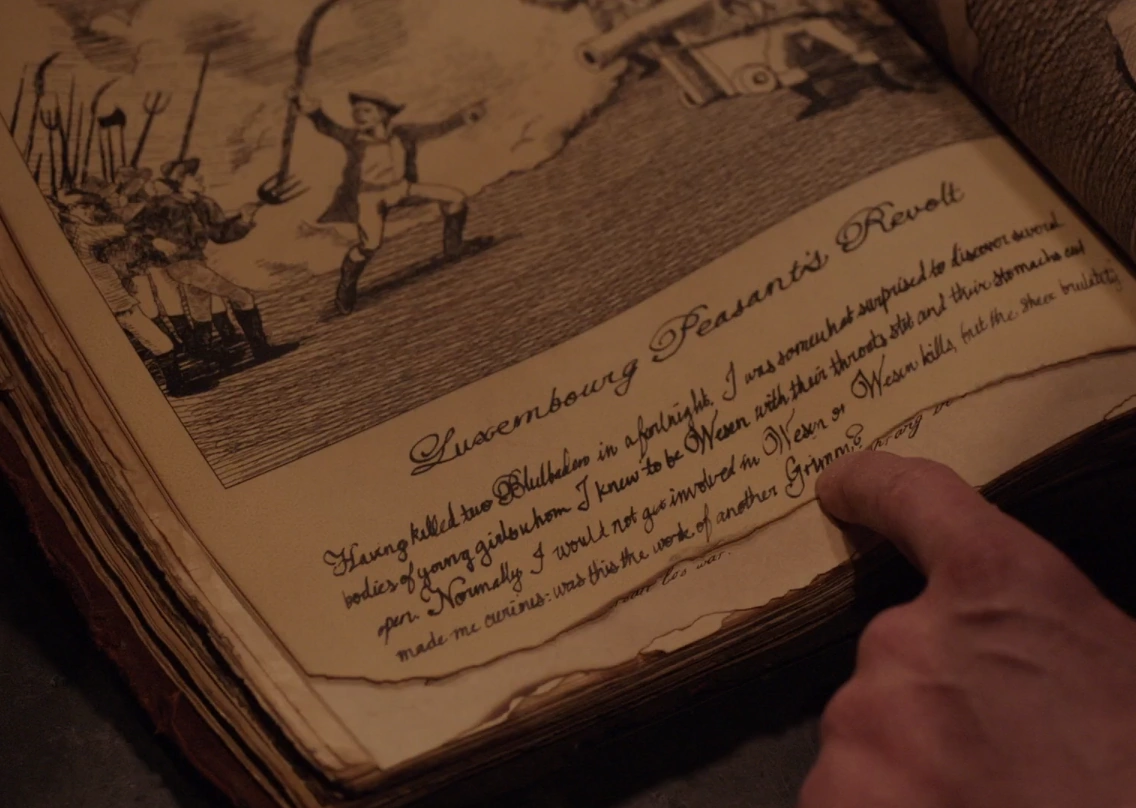 Luxembourg Peasant's Revolt
Having killed two Blutbaden in a fortnight, I was somewhat surprised to discover several
bodies of young girls whom I knew to be Wesen with their throats slit and their stomachs cut
open. Normally I would not get involved in Wesen on Wesen kills, but the sheer brutality
made me curious: was this the work of another Grimm?
war.